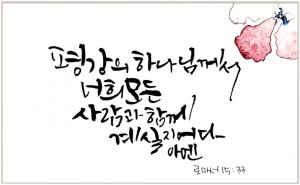 평강의 하나님께서
너희 모든
사람과 함께
계실지어다_
아멘
로마서 15:33